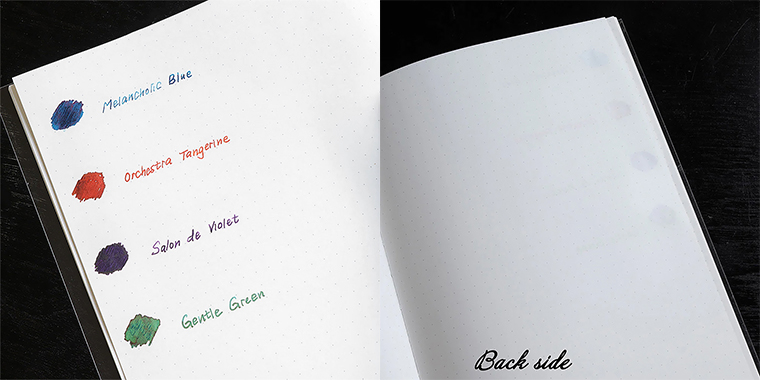 Melancholic Blue
Orchestra Tangerine
Salon de Violet
Gentle Green
Back side